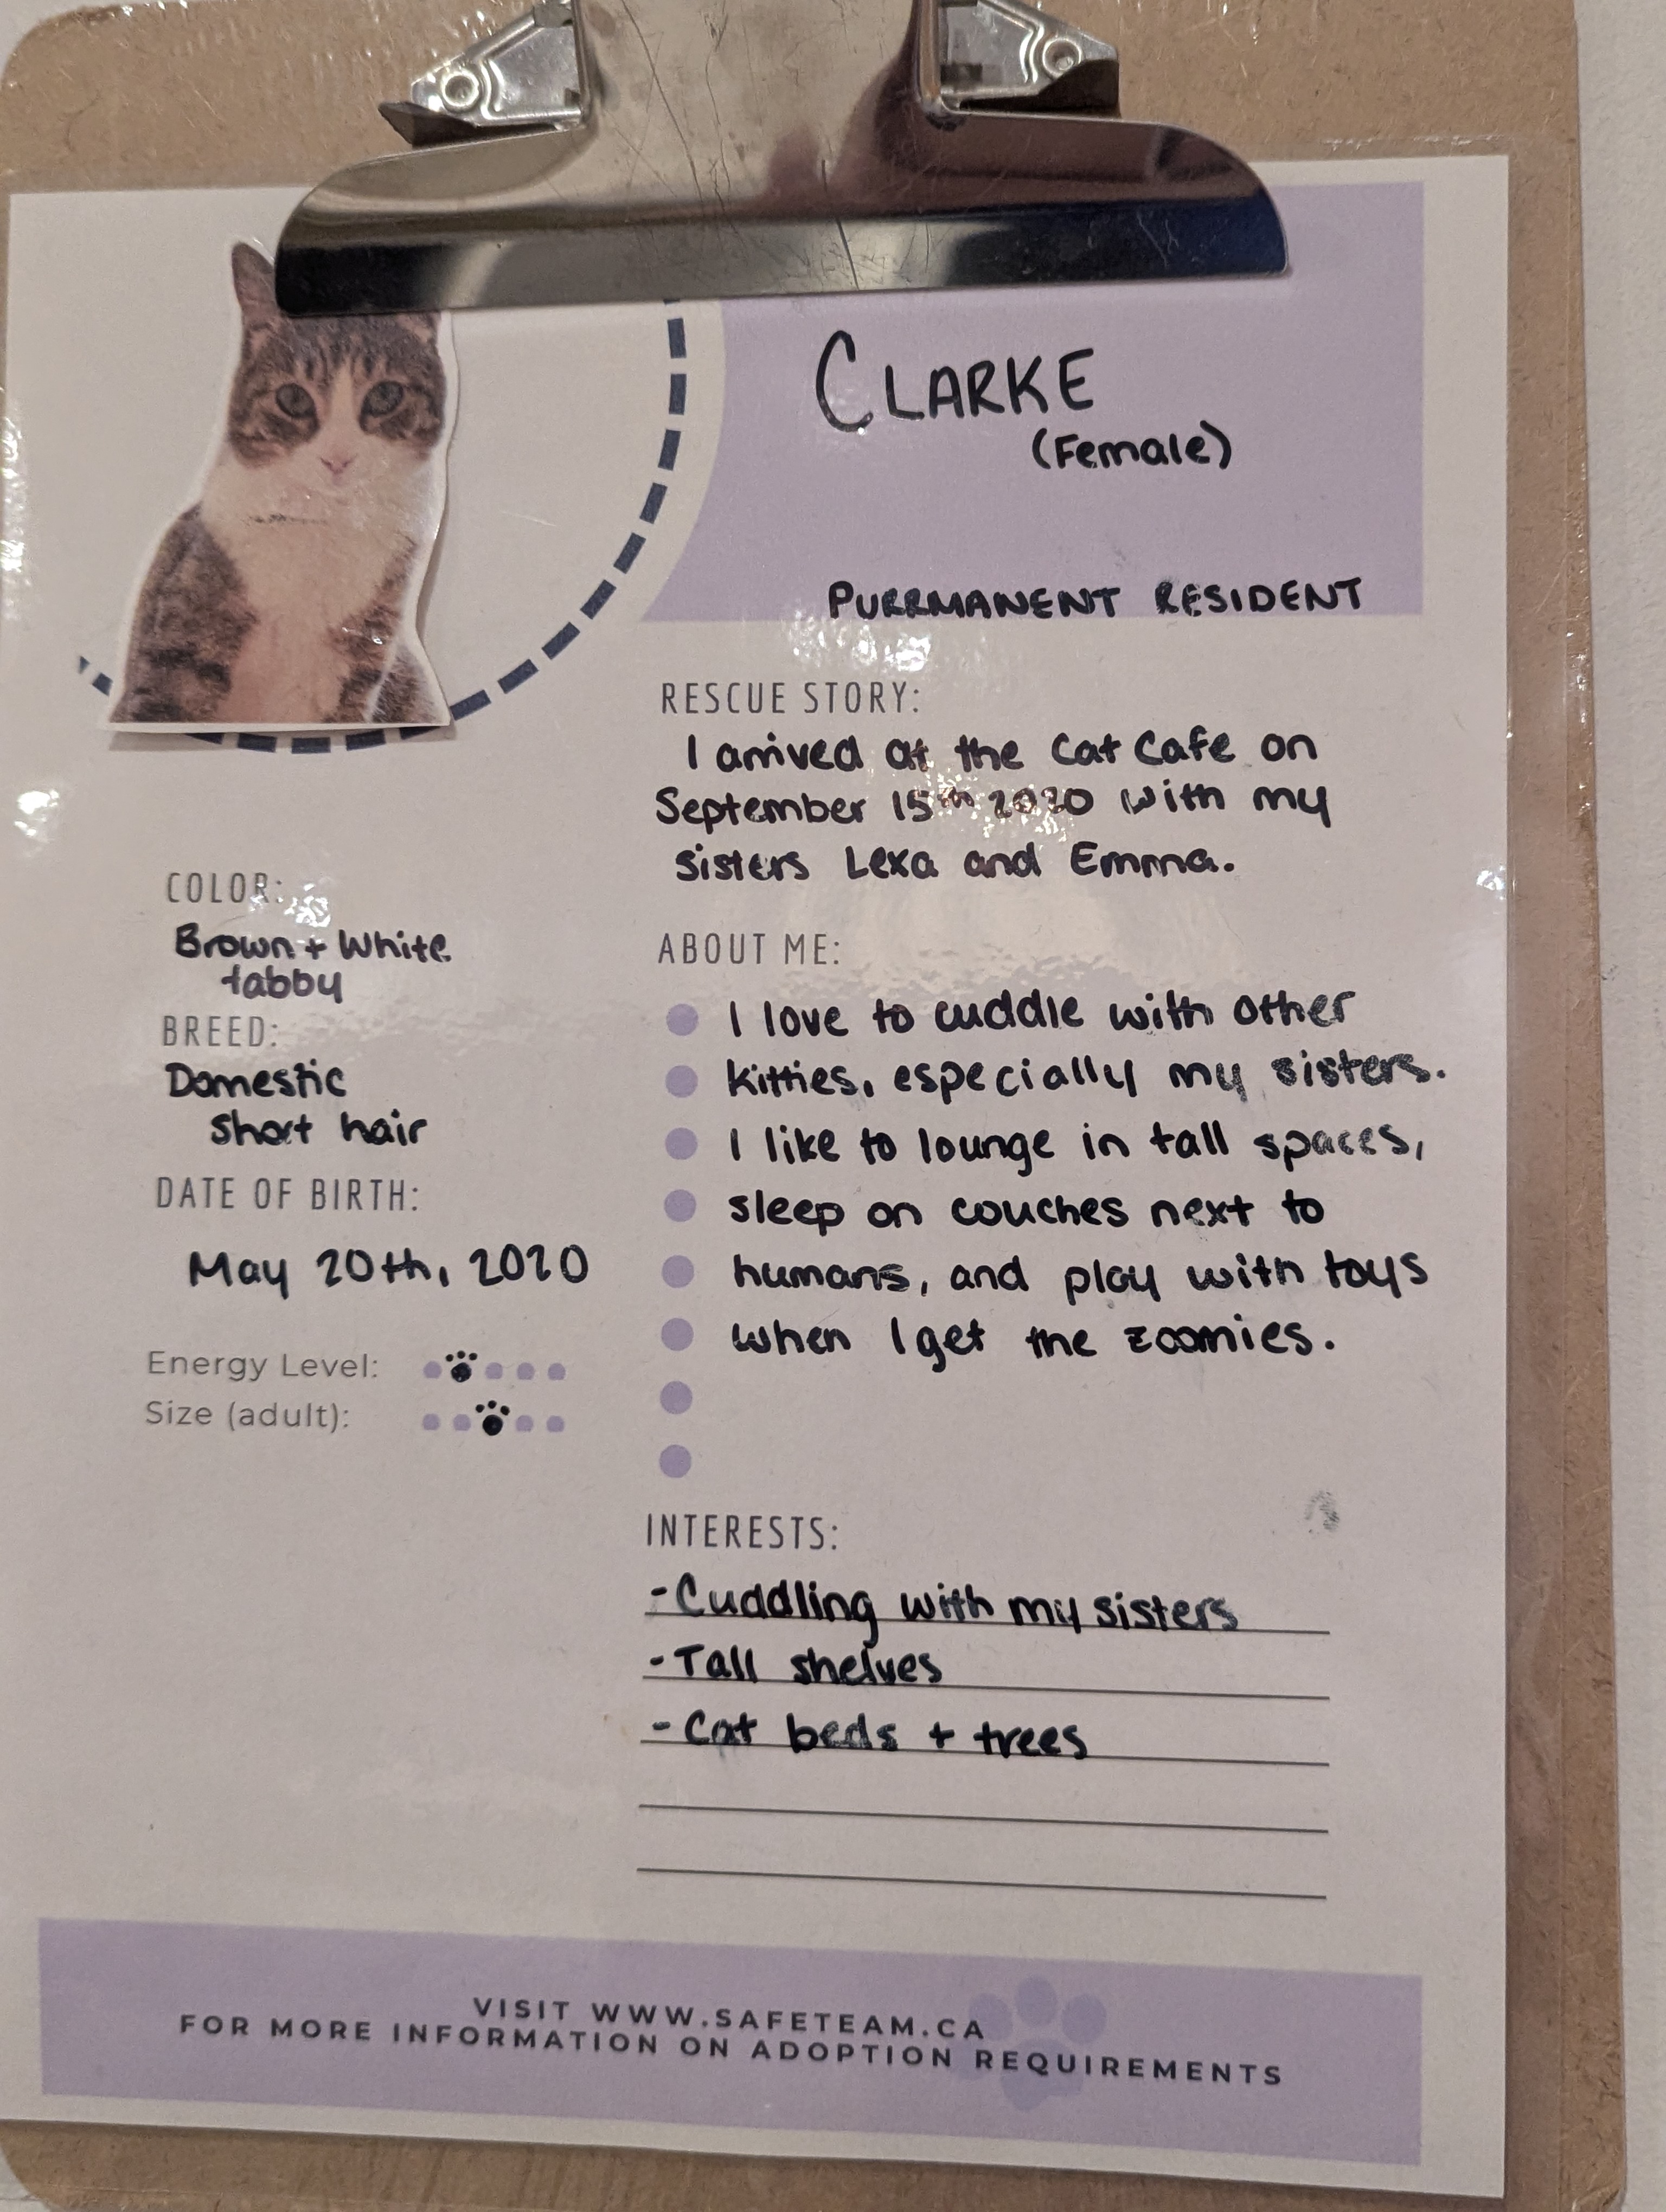 CLARKE
(Female)
PURRMANENT RESIDENT
RESCUE STORY:
I arrived at the Cat Cafe on
September 15th 2020 with my
sisters Lexa and Emma.
COLOR:
Brown + White
tabby
BREED:
Domestic
Short hair
DATE OF BIRTH:
May 20th, 2020
Energy Level:
Size (adult):
ABOUT ME:
I love to cuddle with other
kitties, especially my sisters.
I like to lounge in tall spaces,
sleep on couches next to
humans, and play with toys
when I get the zoomies.
INTERESTS:
-Cuddling with my sisters
-Tall shelves
-Cat beds + trees
VISIT WWW.SAFETEAM.CA
FOR MORE INFORMATION ON ADOPTION REQUIREMENTS